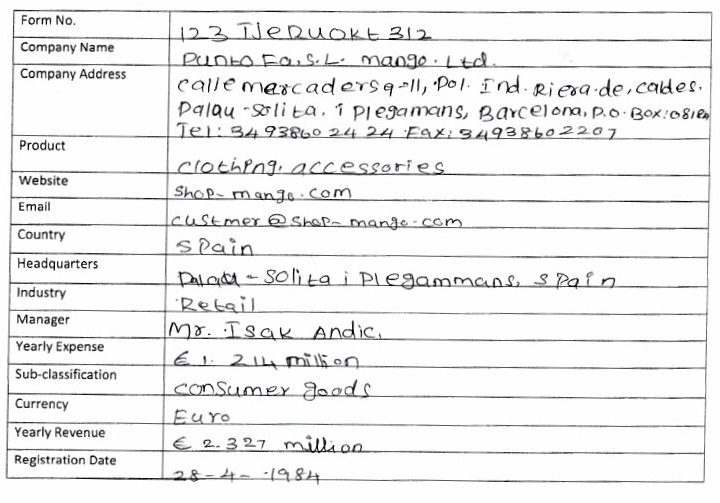 Form No. 123 IJERUOKE 312
Company Name Punto Fa, S.L. mango. Ltd.
Company Address calle mercaders 9-11, Pol. Ind. Riera. de, caldes.
Palau-solita. i plegamans, Barcelona, P.O. Box:
Tel: 34938602424 Fax: 34938602207
Product clothing, accessories
Website shop-mango.com
Email custmer@shop-mango.com
Country Spain
Headquarters Palau-solita i plegammans, spain
Industry Retail
Manager Mr. Isak Andic,
Yearly Expense € 1. 214 million
Sub-classification consumer goods
Currency Euro
Yearly Revenue € 2.327 million
Registration Date 28-4-1984